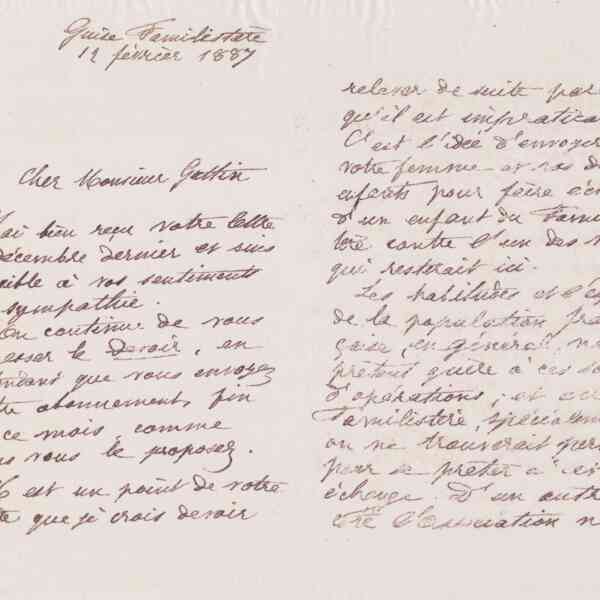 Guise Familistère
12 février 1887
Cher Monsieur Gattin
J'ai bien reçu votre lettre
décembre dernier et suis
sible à vos sentiments
sympathie.
On continue de vous
esser le devoir, en
endant que vous envoyez
tre abonnement fin
ce mois comme
us vous le proposez.
Il est un point de votre
que je crois devoir
relever de suite par
qu'il est impratica
C'est l'idée d'envoyer
votre femme et vos d
enfants pour faire éch
d'un enfant du Fami
tère contre l'un des v
qui resterait ici.
Les habitudes et l'es
de la population fra
çaise, en général, ne
prêtent guère à ces so
d'opérations; et au
Familistère, spécialem
on ne trouverait pers
pour se prêter à cet
échange. D'un autre
côté l'Association n